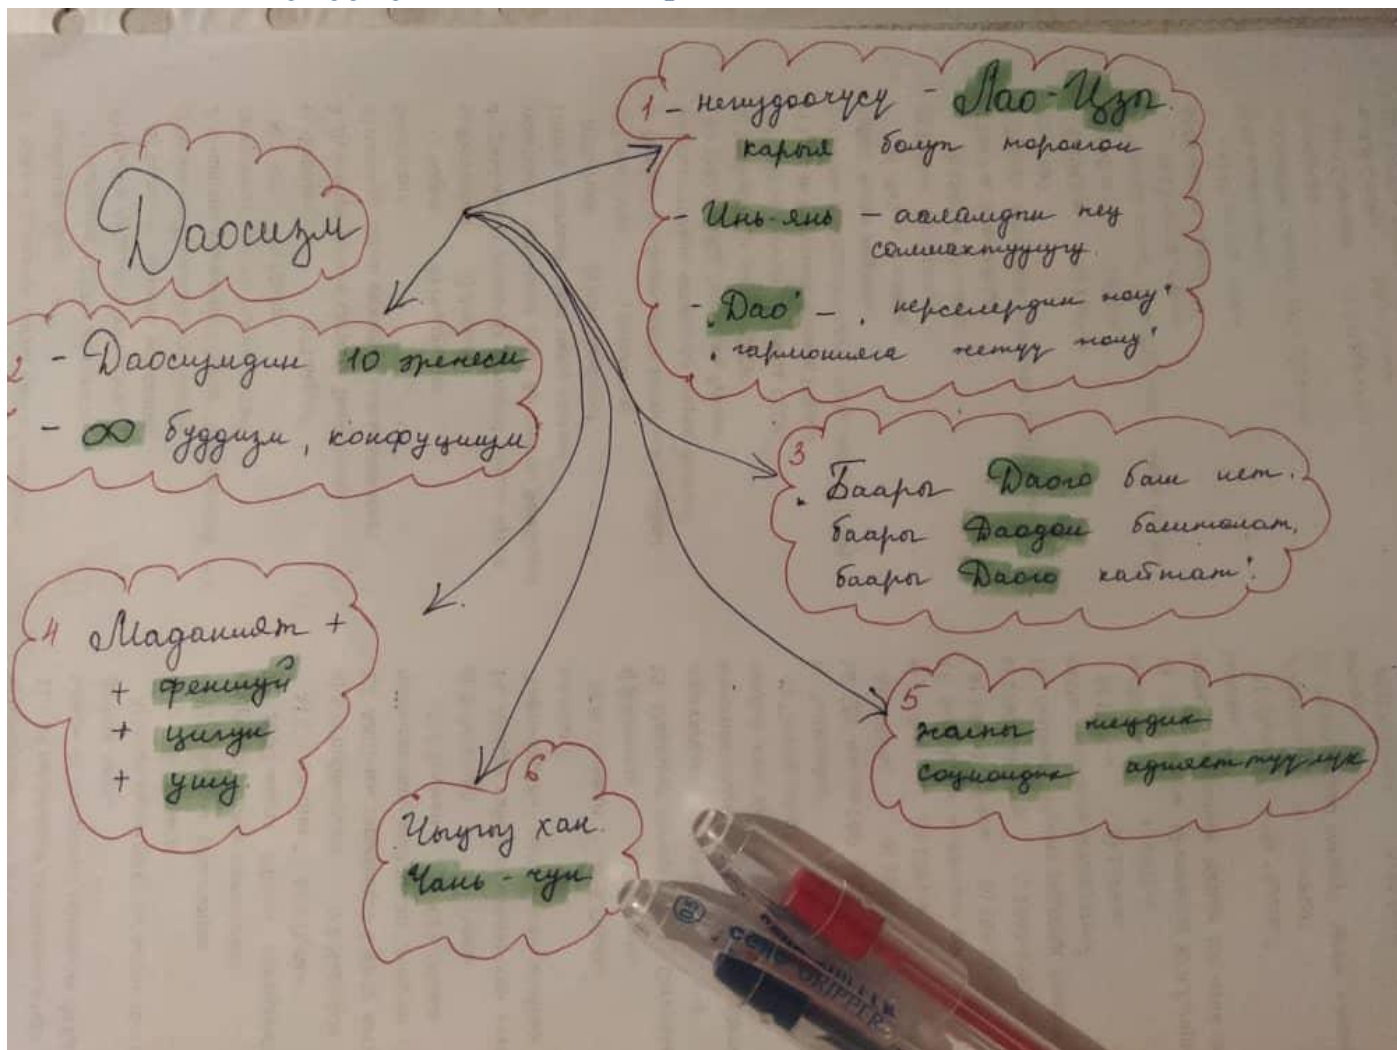 Даосизм
1 - негиздоочусу - Лао-Цзы.
карыя болуп торолгон
- Инь-янь - ааламдын тең
салмактуулугу.
- "Дао" - "нерселердин жолу"
"гармонияга жетүү жолу"
2 - Даосизмдин 10 эрежеси
- ∞ буддизм, конфуцизм
3
"Баары Даого баш иет.
баары Даодон башталат,
баары Даого кайтат".
4 Маданият +
+ феншуй
+ цигун
+ ушу.
5
жалпы теңдик
социалдык адилеттүүлүк
6
Чыңгыз хан.
Чань-чун
0.5
CELLO
GRIPPER